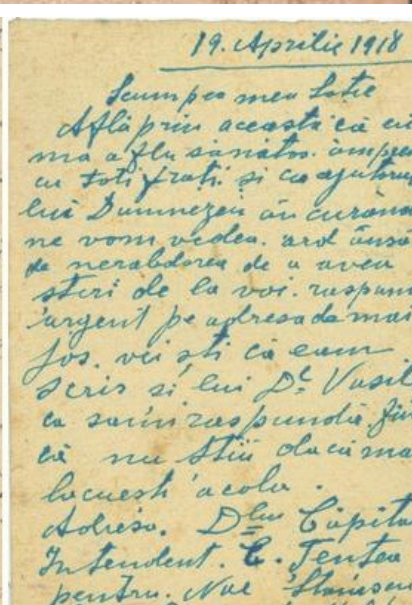 19. Aprilie 1918
Scumpa mea Sotie
Află prin aceasta că eu
ma aflu sănătos. împreu
cu toti frati si cu ajutoru
lui Dumnezeu în curând
ne vom vedea. ard însă
de nerabdorea de a avea
steri de la voi. raspun
urgent pe adresa de mai
jos. vei sti ca eam
scris si lui Dl Vasil
ca sa-mi raspundă. fii
că nu stiu dacă mai
locuesti acolo.
Adresa. Dlui Căpita
Intendent. C. Tentea
pentru. Noe